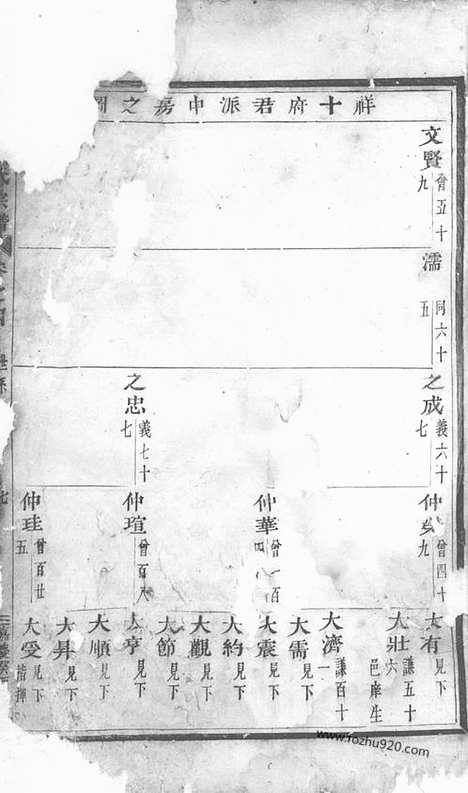 祥十府君派中房之圖
文賢 曾五十九
濡 同六十五
之成 義六十七
之忠 義七十七
仲 曾四十九
仲華
仲瑄 曾百八
仲珪 曾百廿五
大有 見下
大壯 謙五十六 邑庠生
大濟 謙百十一
大需 見下
大震 見下
大約 見下
大觀 見下
大節 見下
大亨 見下
大順 見下
大昇 見下
大受 見下
www.rozhu920.com